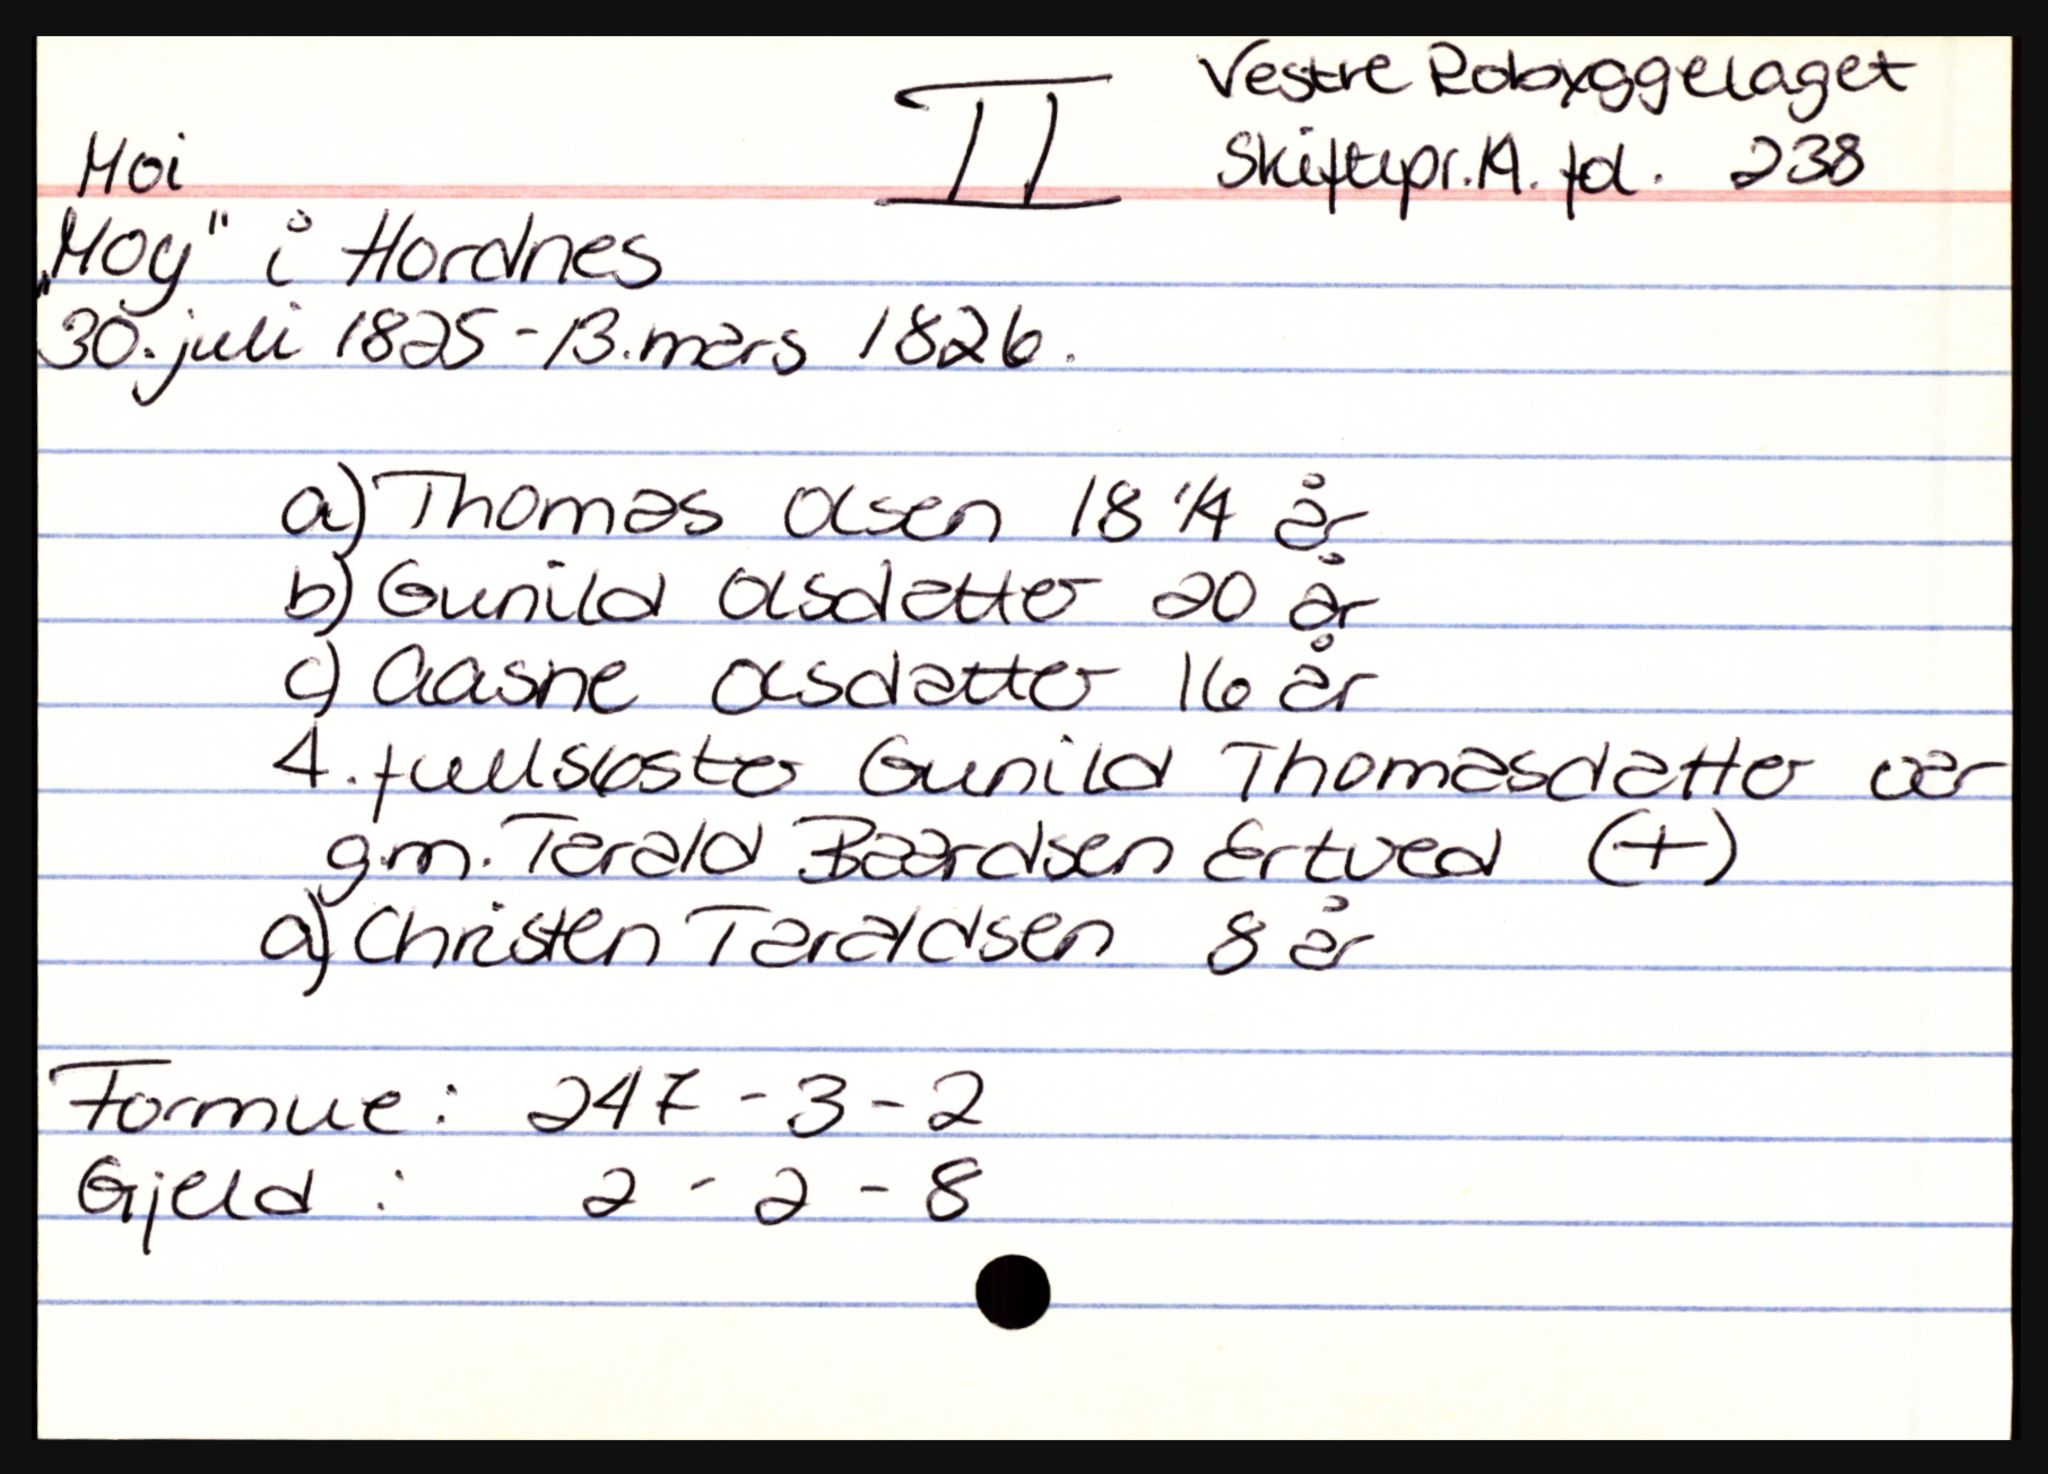 Vestre Robyggelaget
II
Moi
Skiftepr. 14. fol. 238
"Moy" i Hordnes
30. juli 1825 - 13. mars 1826.
a) Thomas Olsen 18 1/4 år
b) Gunild Olsdatter 20 år
c) Aasne Olsdatter 16 år
4. fullsøster Gunild Thomasdatter var
g.m. Tarald Baardsen Ertved (+)
a) Christen Taraldsen 8 år
Formue: 247 - 3 - 2
Gjeld : 2 - 2 - 8